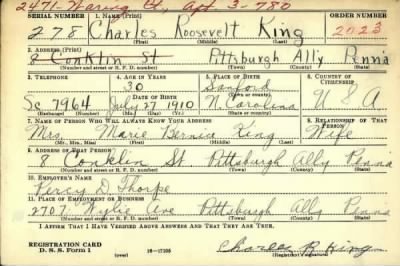 2471-Waring Ct, Apt 3-780
SERIAL NUMBER 1. NAME (Print) ORDER NUMBER
278 Charles Roosevelt King 2023
(First) (Middle) (Last)
2. ADDRESS (Print)
8 Conklin St Pittsburgh Ally Penna
(Number and street or R. F. D. number) (Town) (County) (State)
3. TELEPHONE 4. AGE IN YEARS 5. PLACE OF BIRTH 6. COUNTRY OF CITIZENSHIP
30 Sanford
(Town or county)
Sc 7964 DATE OF BIRTH
July 27 1910 N. Carolina U S A
(Exchange) (Number) (Mo.) (Day) (Yr.) (State or country)
7. NAME OF PERSON WHO WILL ALWAYS KNOW YOUR ADDRESS 8. RELATIONSHIP OF THAT PERSON
Mrs. Marie Bernice King Wife
(Mr., Mrs., Miss) (First) (Middle) (Last)
9. ADDRESS OF THAT PERSON
8 Conklin St Pittsburgh Ally Penna
(Number and street or R. F. D. number) (Town) (County) (State)
10. EMPLOYER'S NAME
Percy D. Thorpe
11. PLACE OF EMPLOYMENT OR BUSINESS
2707 Wylie Ave Pittsburgh Ally Penna
(Number and street or R. F. D. number) (Town) (County) (State)
I AFFIRM THAT I HAVE VERIFIED ABOVE ANSWERS AND THAT THEY ARE TRUE.
REGISTRATION CARD
D. S. S. Form 1 (over) 16-17105 Charles R. King
(Registrant's signature)